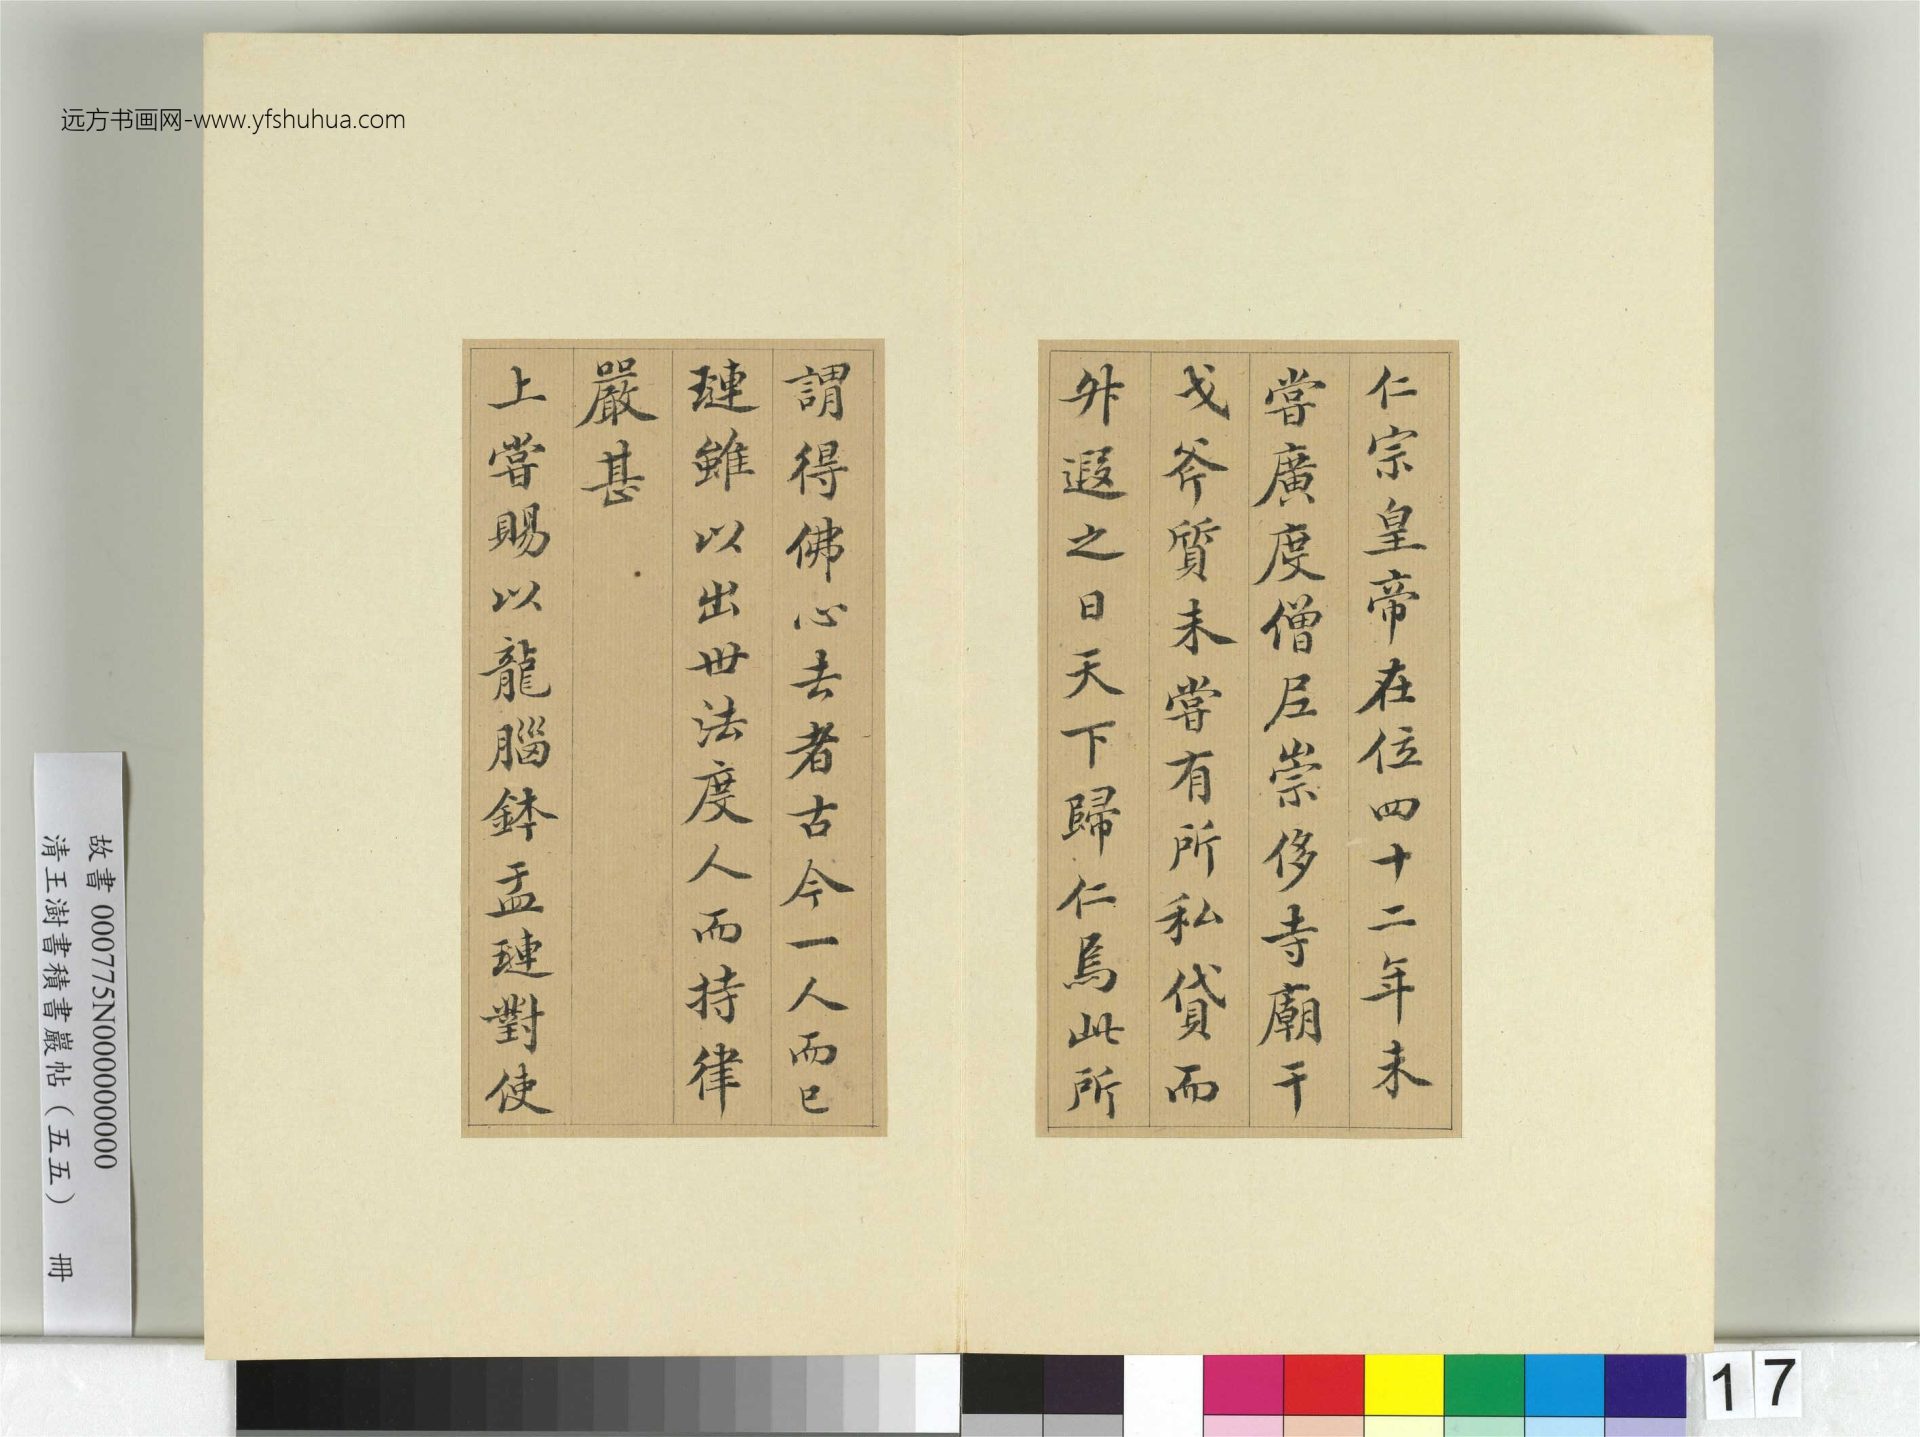 远方书画网-www.yfshuhua.com
仁宗皇帝在位四十二年未
嘗廣度僧尼崇侈寺廟干
戈斧質未嘗有所私貸而
升遐之日天下歸仁焉此所
謂得佛心法者古今一人而已
璉雖以出世法度人而持律
嚴甚
上嘗賜以龍腦鉢盂璉對使
故書 000775N000000000
清王澍書積書巖帖(五五) 冊
17